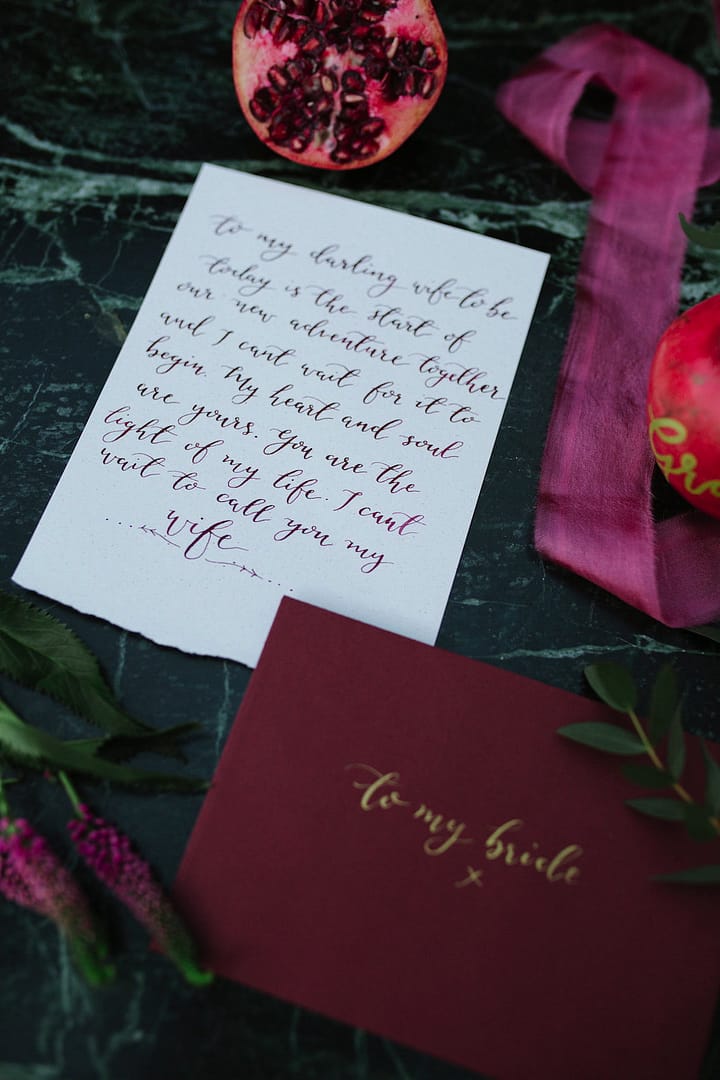 to my darling wife to be
today is the start of
our new adventure together
and I cant wait for it to
begin. My heart and soul
are yours. You are the
light of my life. I cant
wait to call you my
wife
to my bride
x